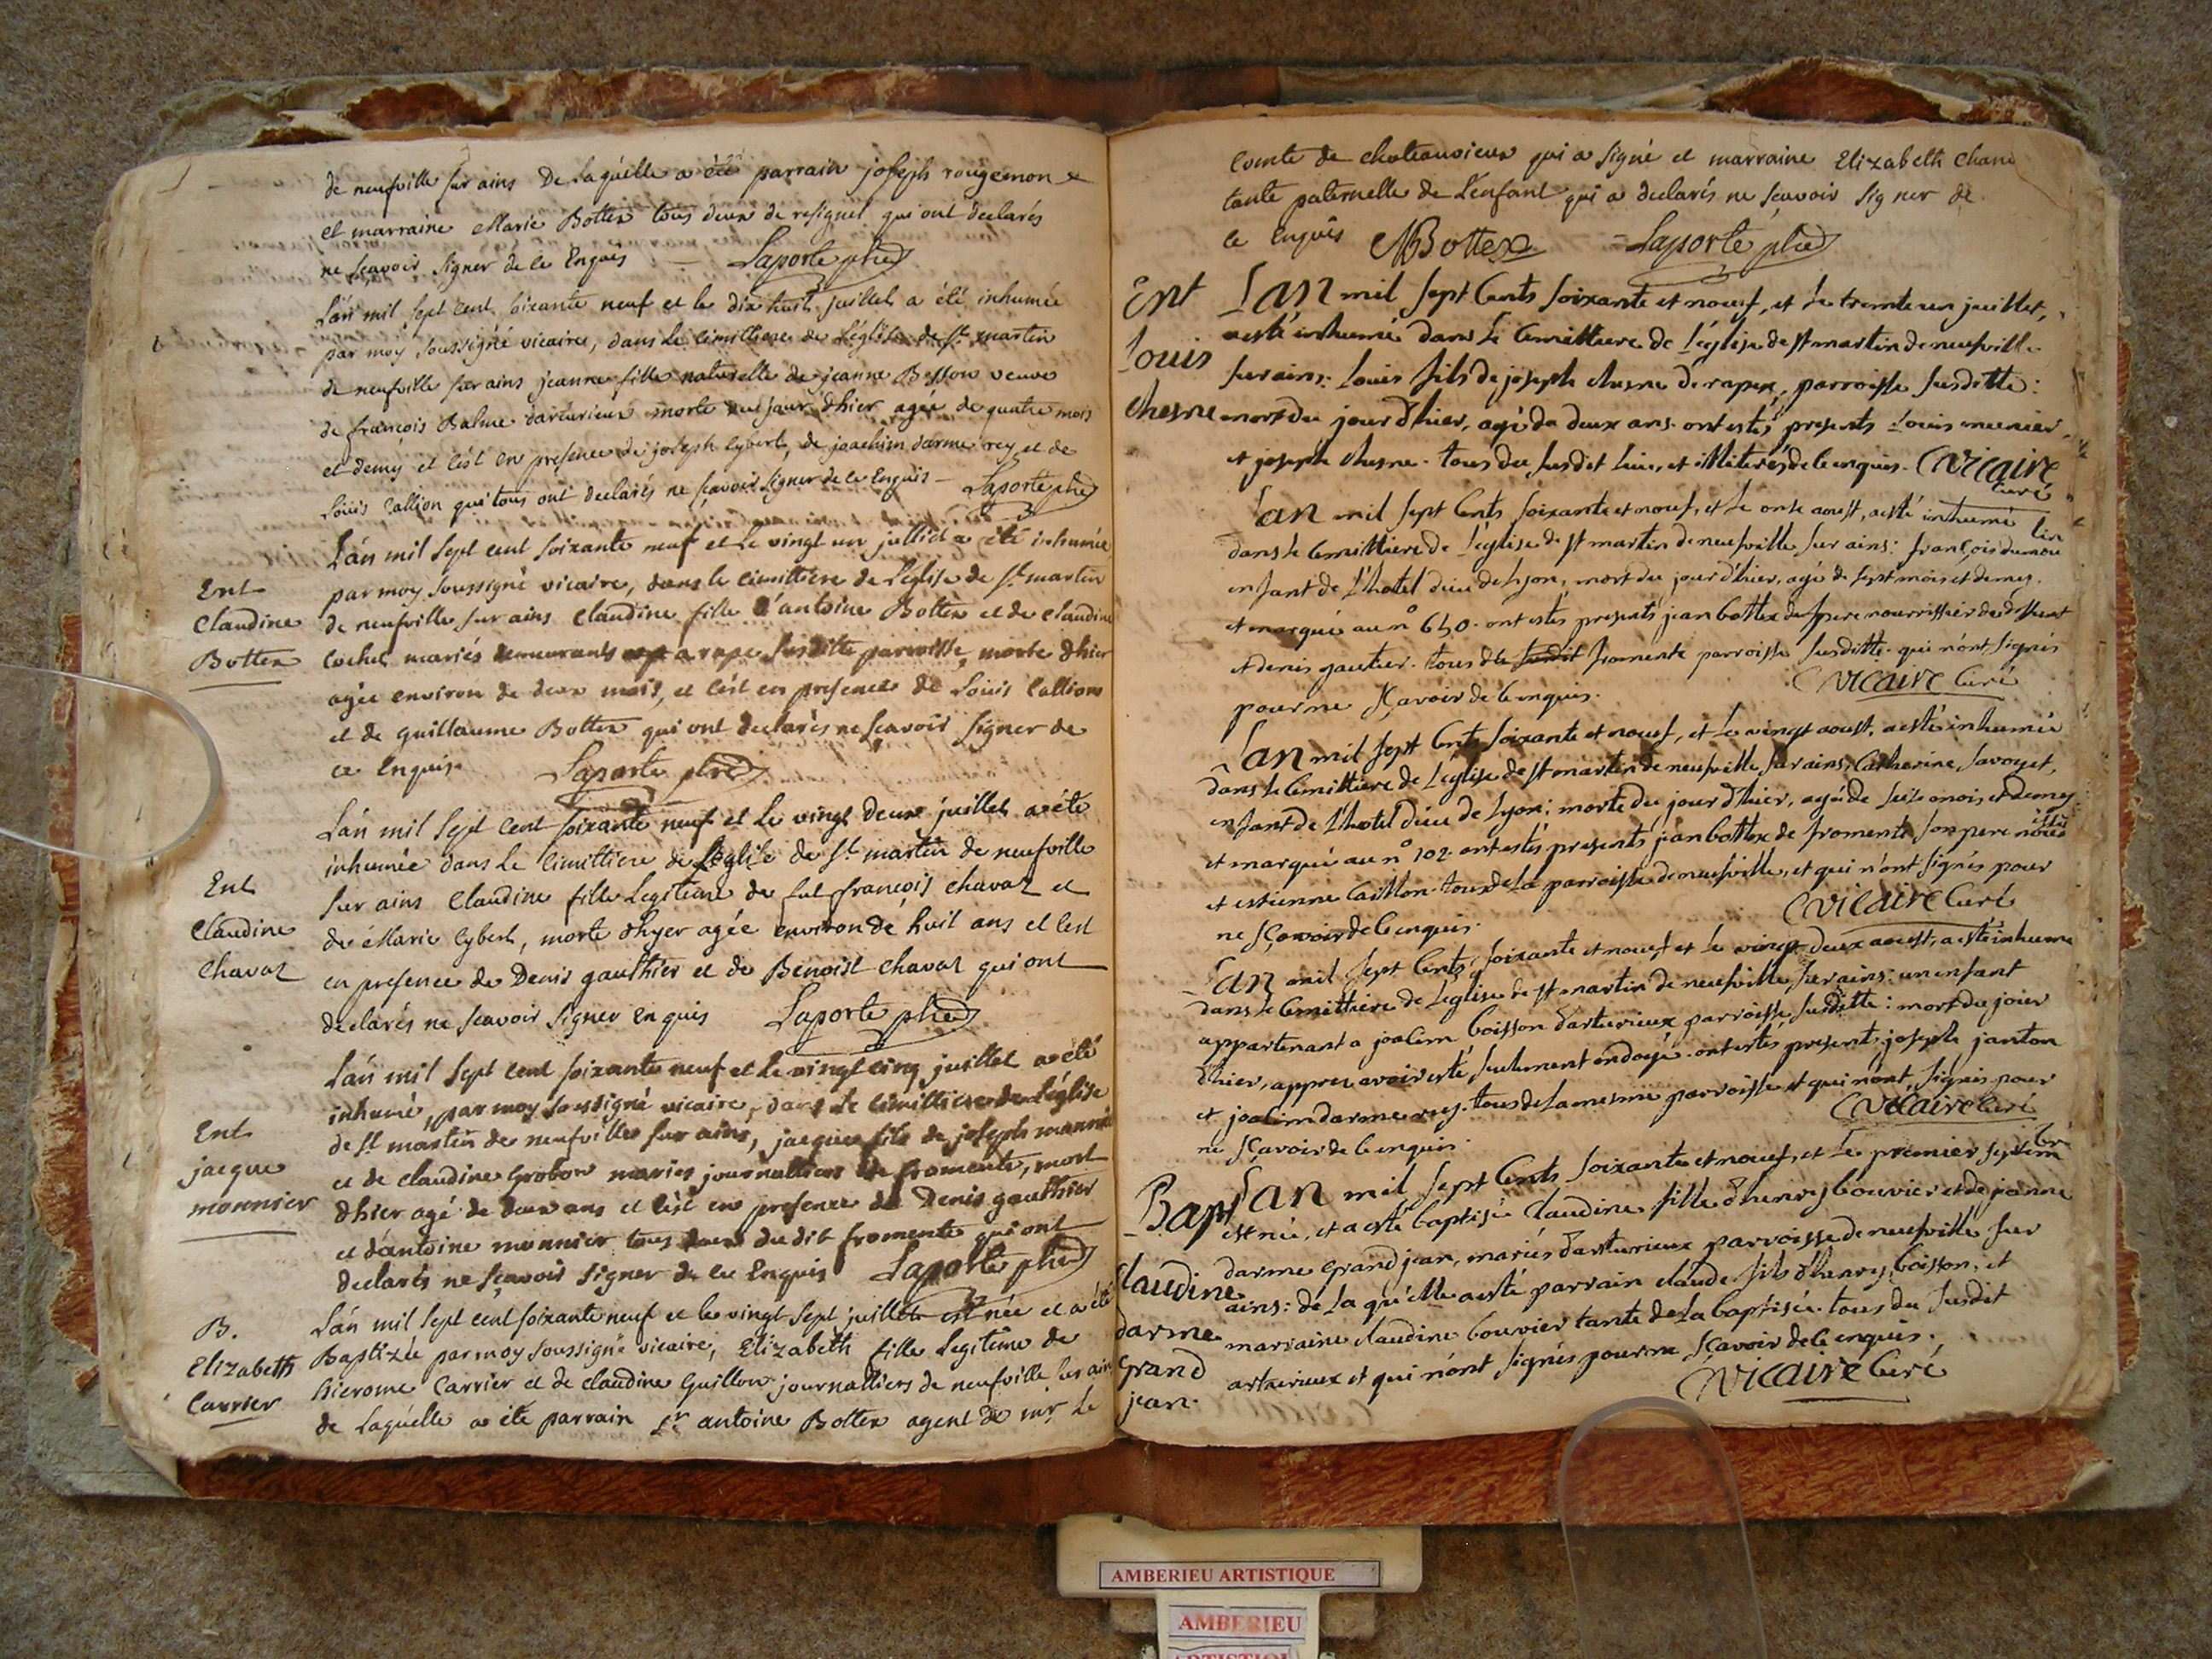 de neufville sur ains De laquelle a été parrain joseph rougemon
et marraine Marie Bottex tous deux de resignel qui ont declarés
ne sçavoir signer de ce Enquis — Laporte ptre
L'an mil sept cent soixante neuf et le dix huit juillet a été inhumée
par moy soussigné vicaire, dans le cimittiere de l'église de St martin
de neufville sur ains jeanne fille naturelle de jeanne Besson veuve
de françois Balme darturieux morte du jour d'hier agée de quatre mois
et demÿ et c'est en presence de joseph Cybert, de joachim darme rey et de
Louis Callion qui tous ont declarés ne sçavoir signer de ce Enquis — Laporte ptre
Ent
Claudine
Bottex
L'an mil sept cent soixante neuf et le vingt un juillet a été inhumée
par moy soussigné vicaire, dans le cimittiere de l'église de St martin
de neufville sur ains Claudine fille d'antoine Bottex et de Claudine
Cochet mariés demeurants a rape susditte parroisse, morte d'hier
agée environ de deux mois, et c'est en presence de Louis Callion
et de guillaume Bottex qui ont declarés ne sçavoir signer de
ce Enquis Laporte ptre
Ent
Claudine
Chavat
L'an mil sept cent soixante neuf et le vingt deux juillet a été
inhumée dans le cimittiere de l'église de St martin de neufville
sur ains Claudine fille Legitime de fut françois chavat et
de Marie Cybert, morte d'hyer agée environ de huit ans et c'est
en presence de Denis gauthier et de Benoist Chavat qui ont
declarés ne sçavoir signer Enquis Laporte ptre
Ent
jacque
monnier
L'an mil sept cent soixante neuf et le vingt cinq juillet a été
inhumé, par moy soussigné vicaire, dans le cimittiere de l'église
de St martin de neufville sur ains, jacques fils de joseph monnié
et de claudine Grobon mariés journalliers de fromente, mort
d'hier agé de deux ans et c'est en presence de Denis gauthier
et d'antoine monnier tous deux du dit fromente qui ont
declarés ne sçavoir signer de ce Enquis Laporte ptre
B.
Elizabeth
Carrier
L'an mil sept cent soixante neuf et le vingt sept juillet est née et a été
Baptizée par moy soussigné vicaire, Elizabeth fille Legitime de
hierome Carrier et de claudine Guillon journalliers de neufville sur ain
de Laquelle a été parrain Sr antoine Bottex agent de mr Le
Comte de chateauvieux qui a signé et marraine Elizabeth
tante paternelle de L'enfant qui a declarés ne sçavoir signer de
ce Enquis Bottex Laporte ptre
Ent
Louis
chesne
L'an mil sept Cents soixante et noeuf, et Le trente un juillet,
a esté inhumé dans Le Cemittiere de L'église de st martin de neufville
sur ains: Louis fils de joseph chesne de rapex, parroisse susditte:
mort du jour d'hier, agé de deux ans. ont estés presents Louis munier
et joseph chesne. tous du susdit lieu, et illiterés de Ce enquis. Vicaire
Curé
L'an mil sept Cents soixante et noeuf, et Le onze aoust, a esté inhumé
dans Le Cemittiere de L'église de st martin de neufville sur ains: françois dumou
lin
enfant de L'hotel dieu de Lyon, mort du jour d'hier, agé de sept mois et demy.
et marqué au no 650. ont estés presents jean bottex du pere nourrissier du deffunt
et denis gautier. tous de susdit fromente parroisse susditte. qui n'ont signés
pour ne sçavoir de Ce enquis. Vicaire Curé
L'an mil sept Cents soixante et noeuf, et Le vingt aoust, a esté inhumée
dans Le Cemittiere de L'église de st martin de neufville sur ains, Catherine savoyet,
enfant de L'hotel dieu de Lyon; morte du jour d'hier, agée de seize mois et demy
et marqué au no 102. ont estés presents jean bottex de fromente, son pere nourissié
et estienne Caillon. tous de La parroisse de neufville, et qui n'ont signés pour
ne sçavoir de Ce enquis. Vicaire Curé
L'an mil sept Cents soixante et noeuf et Le vingt deux aoust, a esté inhumé
dans Le Cemittiere de L'église de st martin de neufville, sur ains: un enfant
appartenant a joacim Coisson d'arturieux parroisse susditte: mort du joier
d'hier, appres avoir esté seulement ondoyé. ont estés present joseph janton
et joacim darme rey. tous de La mesme parroisse et qui n'ont signés pour
ne sçavoir de Ce enquis. Vicaire Curé
Bap
Claudine
darme
Grand
jean.
L'an mil sept Cents soixante et noeuf, et Le premier septem
bre
est née, et a esté baptisée Claudine fille d'henry bouvier et de jeanne
darme Grand jean, mariés d'arturieux parroisse de neufville sur
ains: de La qu'elle a esté parrain claude fils d'henry Coisson, et
marraine claudine bouvier tante de La baptisée. tous du susdit
arturieux et qui n'ont signés pour ne sçavoir de Ce enquis.
Vicaire Curé
AMBERIEU ARTISTIQUE
AMBERIEU
ARTISTIQUE